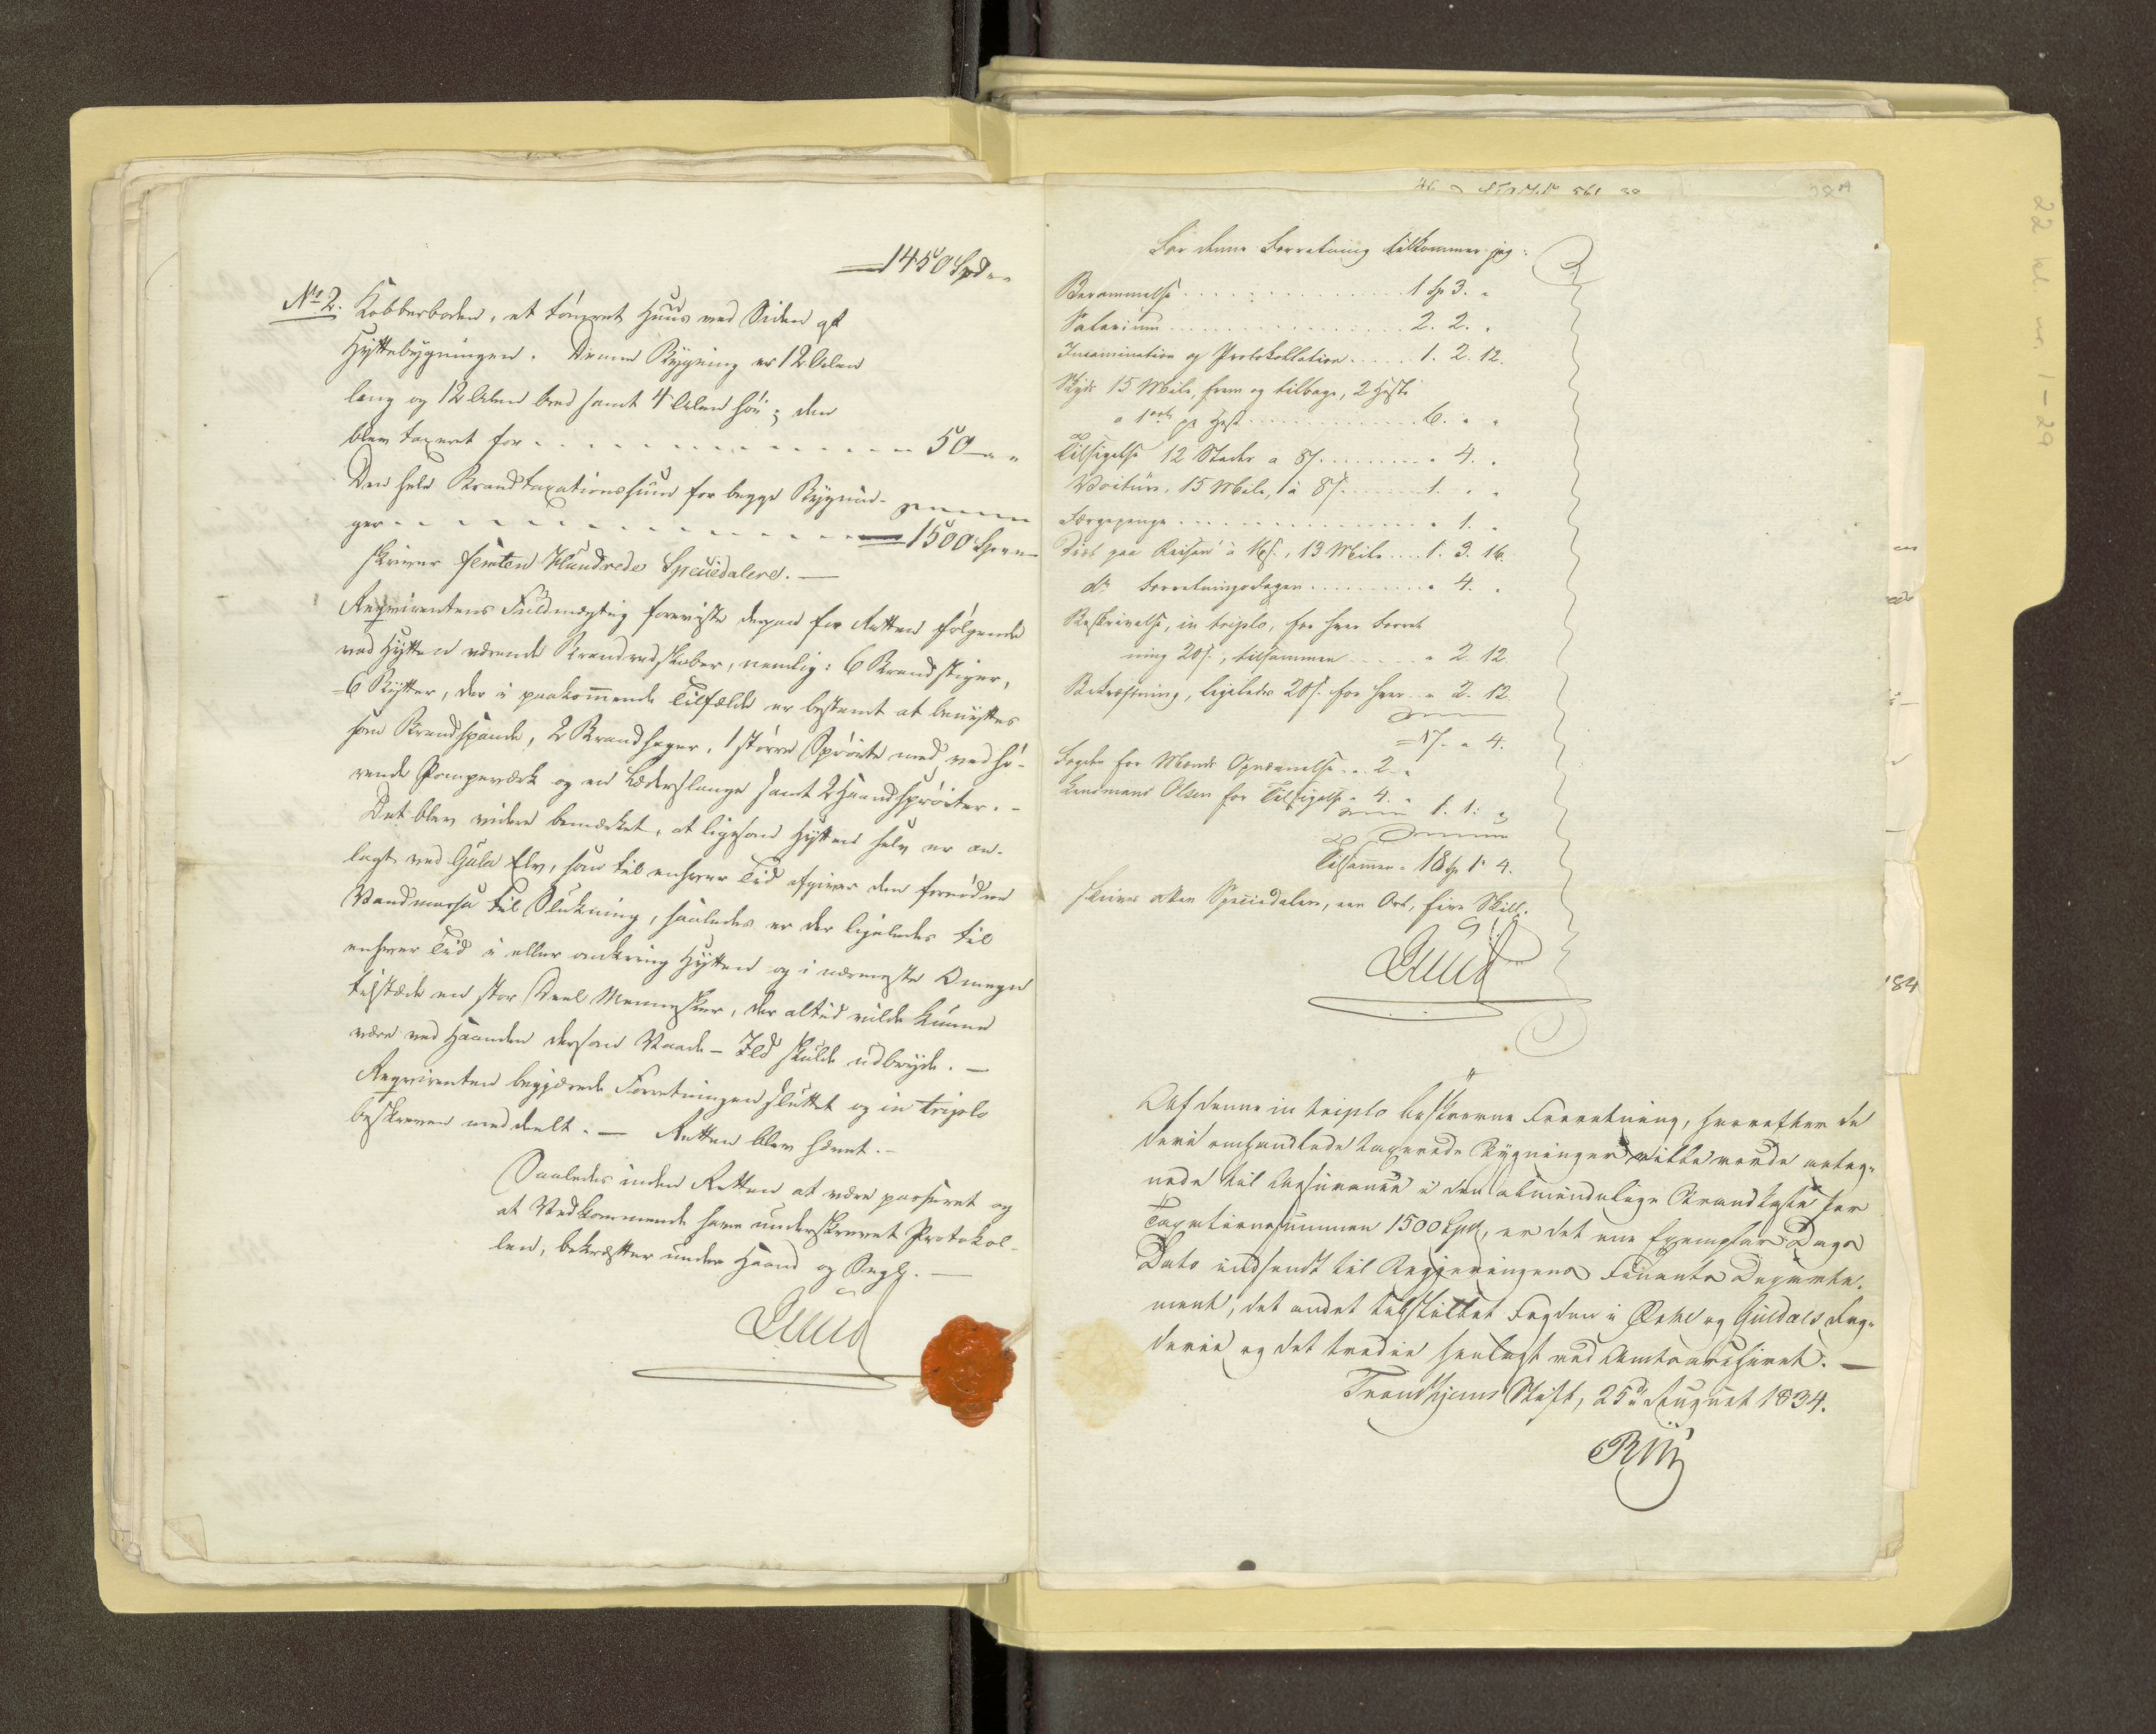 1450 Spd „ „
No 2. Kobberboden, et tømret Huus ved Siden af
Hyttebygningen. Denne Bygning er 12 Alen
lang og 12 Alen bred samt 4 Alen høi; den
blev taxeret for 50 „ „
Den hele Brandtaxationssum for begge Bygnin-
ger 1500 Spd „ „
skriver femten Hundrede Speciedalere. —
Reqvirentens Fuldmægtig foreviste derpaa for Retten følgende
ved Hytten værende Brandredskaber, nemlig: 6 Brandstiger,
6 Bøtter, der i paakommende Tilfælde er bestemt at benyttes
som Brandspande, 2 Brandhager, 1 større Sprøite med vedhø-
rende Pompeværk og en Læderslange samt 2 Haandsprøiter. –
Det blev videre bemærket, at ligesom Hytten selv er an-
lagt ved Gula Elv, som til enhver Tid afgiver den fornødne
Vandmasse til Slukning, saaledes er der ligeledes til
enhver Tid i eller omkring Hytten og i nærmeste Omegn
tilstæde en stor Deel Mennesker, der altid vilde kunne
være ved Haanden dersom Vaade-Ild skulde udbryde. —
Reqvirenten begjærede Forretningen sluttet og in triplo
beskreven meddeelt. — Retten blev hævet. –
Saaledes inden Retten at være passeret og
at Vedkommende have underskrevet Protokol-
len, bekræfter under Haand og Segl. —
Lund
For denne Forretning tilkommer jeg:
Berammelse 1 Sp 3. „
Salarium 2. 2. „
Incamination og Protokollation 1. 2. 12.
Skyds 15 Mile, frem og tilbage, 2 Heste
a 1 ort pr Hest 6. „ „
Tilsigelse 12 Steder a 8 s „ 4. „
Voiture, 15 Mile, à 8 s 1. „ „
Færgepenge „ 1. „
Diæt paa Reisen à 16 s, 13 Mile 1. 3. 16.
do Forretningsdagen „ 4. „
Beskrivelse, in triplo, for hver Forret-
ning 20 s, tilsammen „ 2. 12
Bekræftning, ligeledes 20 s for hver „ 2. 12
17. „ 4.
Fogden for Mænds Opnævnelse „ 2 „
Lensmand Olsen for Tilsigelse „ 4. „ 1. 1. „
Tilsammen 18 Sp 1 4.
skriver atten Speciedaler, een Ort, fire Skill.
Lund
Af denne in triplo beskrevne Forretning, hvorefter de
deri omhandlede taxerede Bygninger ville vorde anteg-
nede til Assurance i den almindelige Brandkasse for
Taxationssummen 1500 Spd, er det ene Exemplar Dags
Dato indsendt til Regjeringens Finants Departe-
ment, det andet tilstillet Fogden i Ørke og Guldals Fog-
derie og det tredie henlagt ved Amtsarchivet. —
Trondhjems Stift, 25de August 1834.